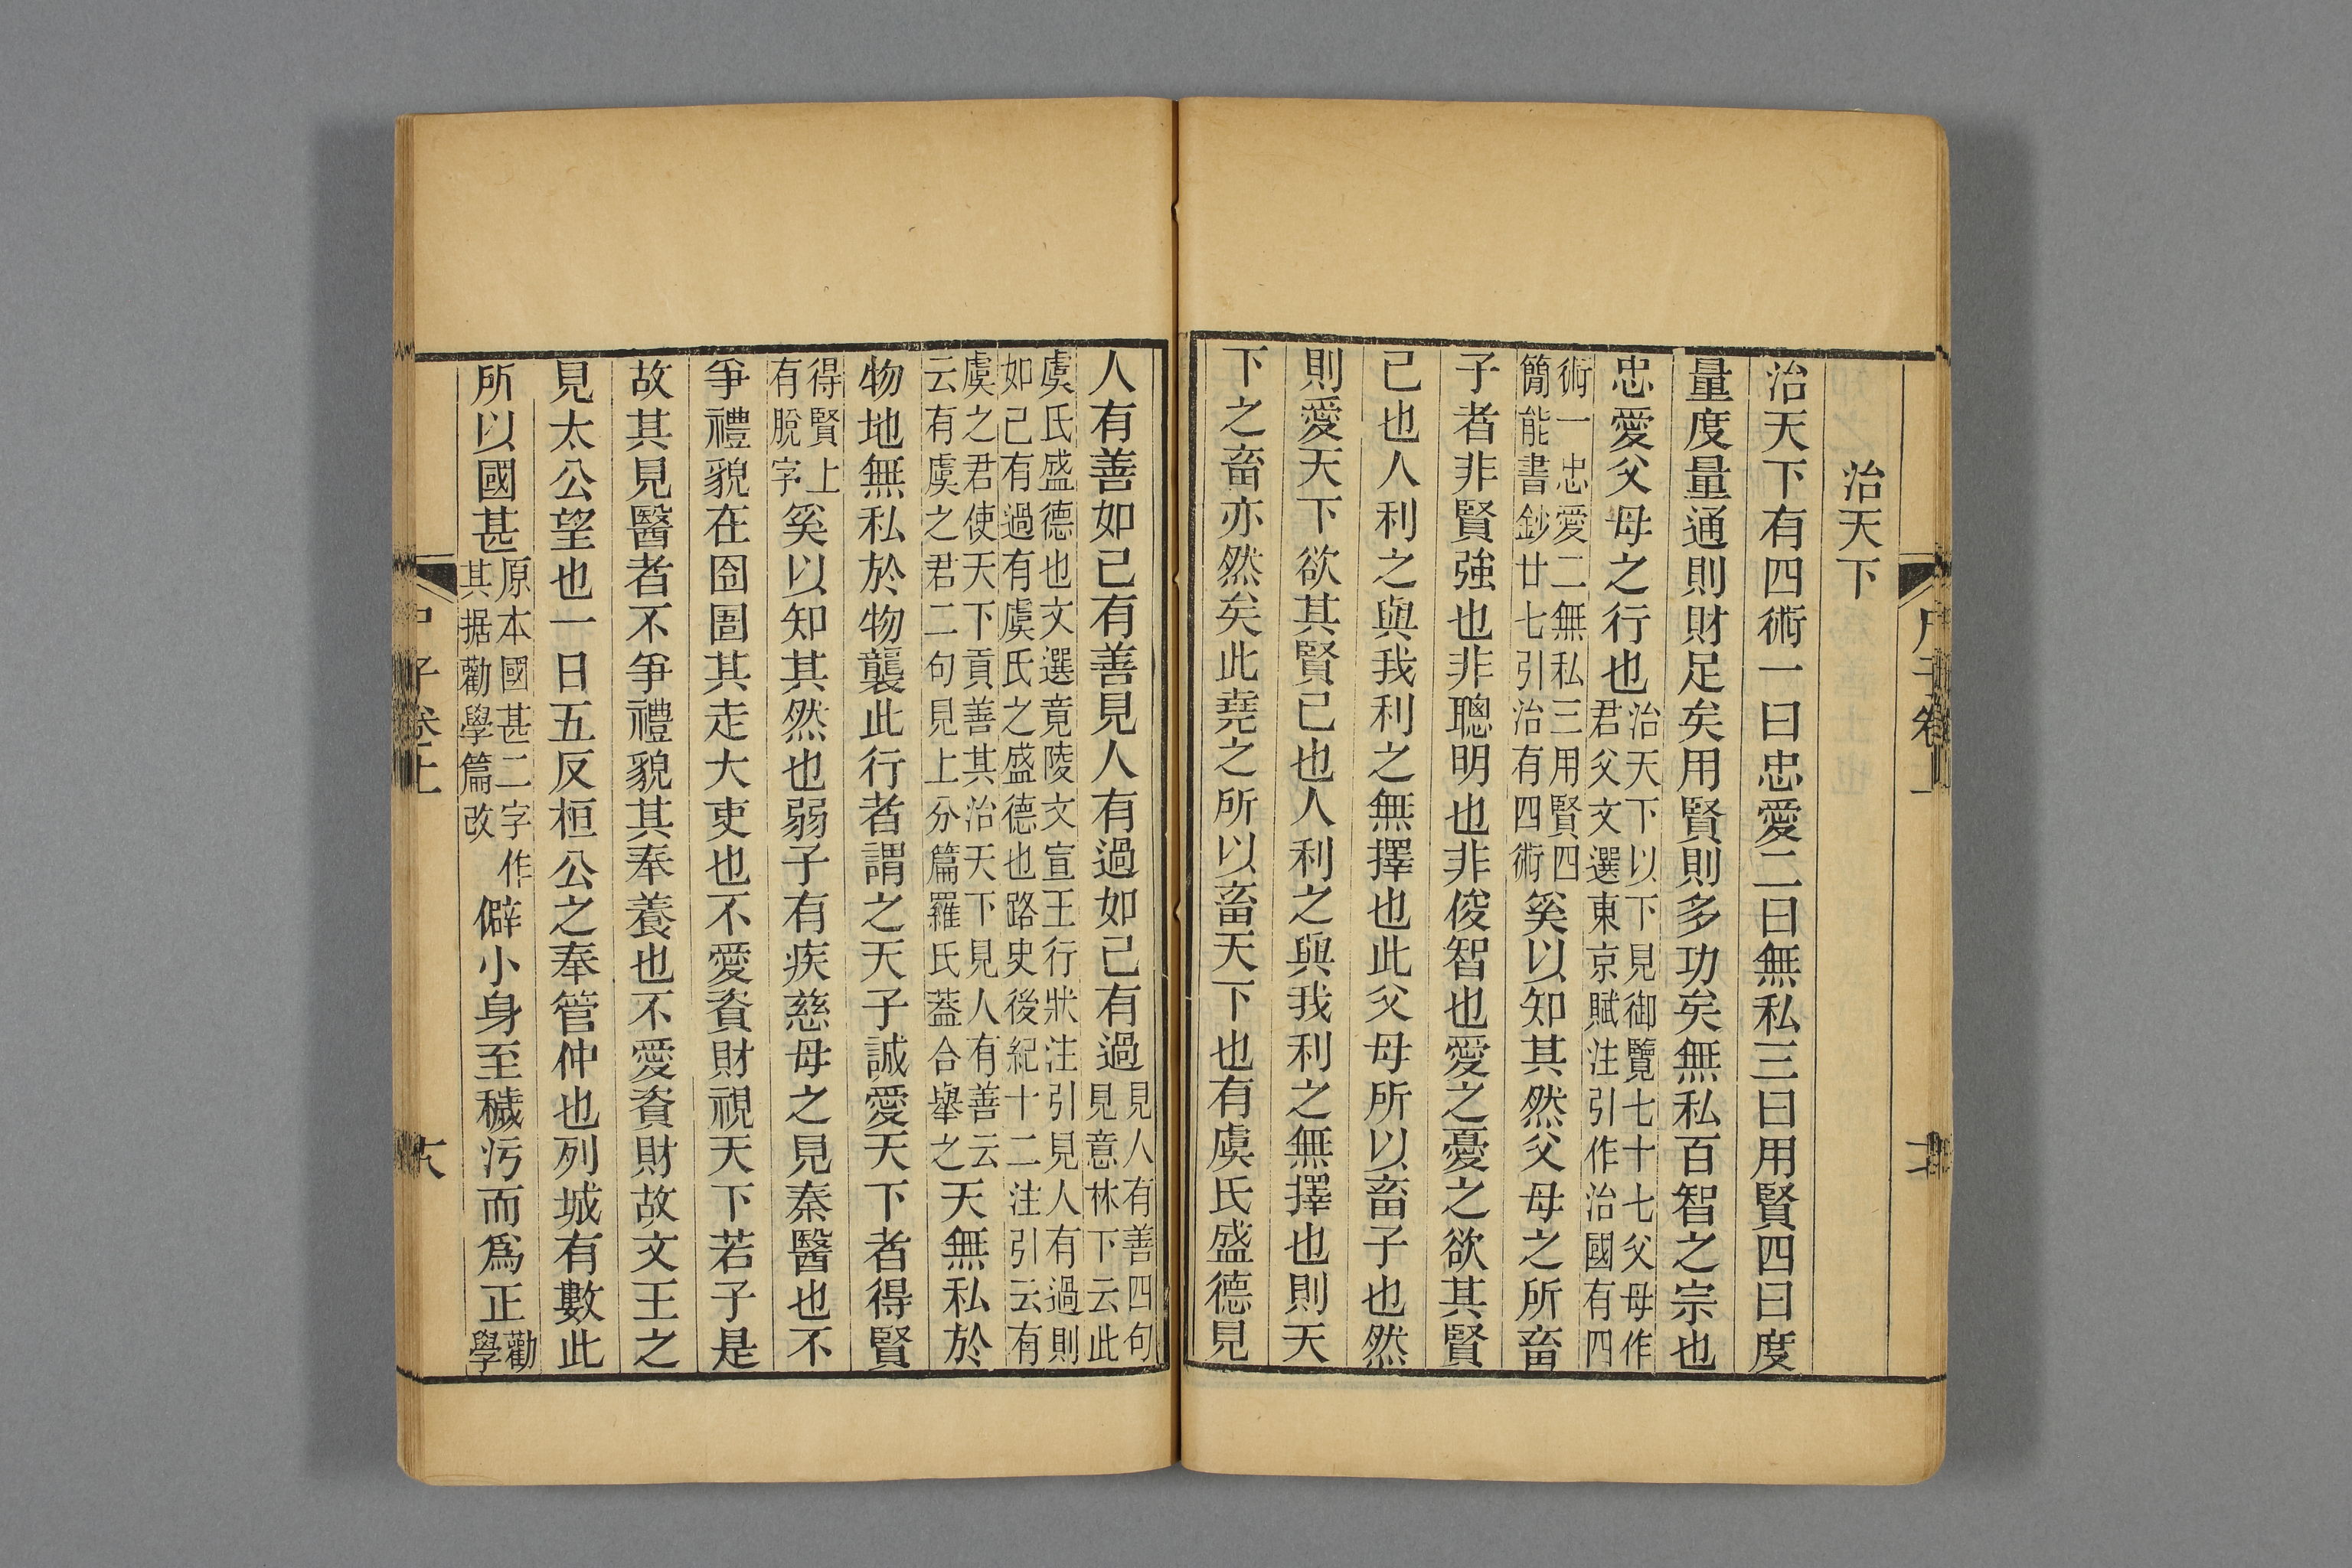 治天下
治天下有四術一曰忠愛二曰無私三曰用賢四曰度
量度量通則財足矣用賢則多功矣無私百智之宗也
忠愛父母之行也治天下以下見御覽七十七父母作君父文選東京賦注引作治國有四
術一忠愛二無私三用賢四簡能書鈔廿七引治有四術奚以知其然父母之所畜
子者非賢強也非聰明也非俊智也愛之憂之欲其賢
己也人利之與我利之無擇也此父母所以畜子也然
則愛天下欲其賢己也人利之與我利之無擇也則天
下之畜亦然矣此堯之所以畜天下也有虞氏盛德見
人有善如己有善見人有過如己有過見人有善四句見意林下云此
虞氏盛德也文選竟陵文宣王行狀注引見人有過則如己有過有虞氏之盛德也路史後紀十二注引云有
虞之君使天下貢善其治天下見人有善云云有虞之君二句見上分篇羅氏蓋合舉之天無私於
物地無私於物襲此行者謂之天子誠愛天下者得賢
得賢上有脫字奚以知其然也弱子有疾慈母之見秦醫也不
爭禮貌在囹圄其走大吏也不愛資財視天下若子是
故其見醫者不爭禮貌其奉養也不愛資財故文王之
見太公望也一日五反桓公之奉管仲也列城有數此
所以國甚原本國甚二字作其据勸學篇改僻小身至穢污而爲正勸學
尸子卷上
大